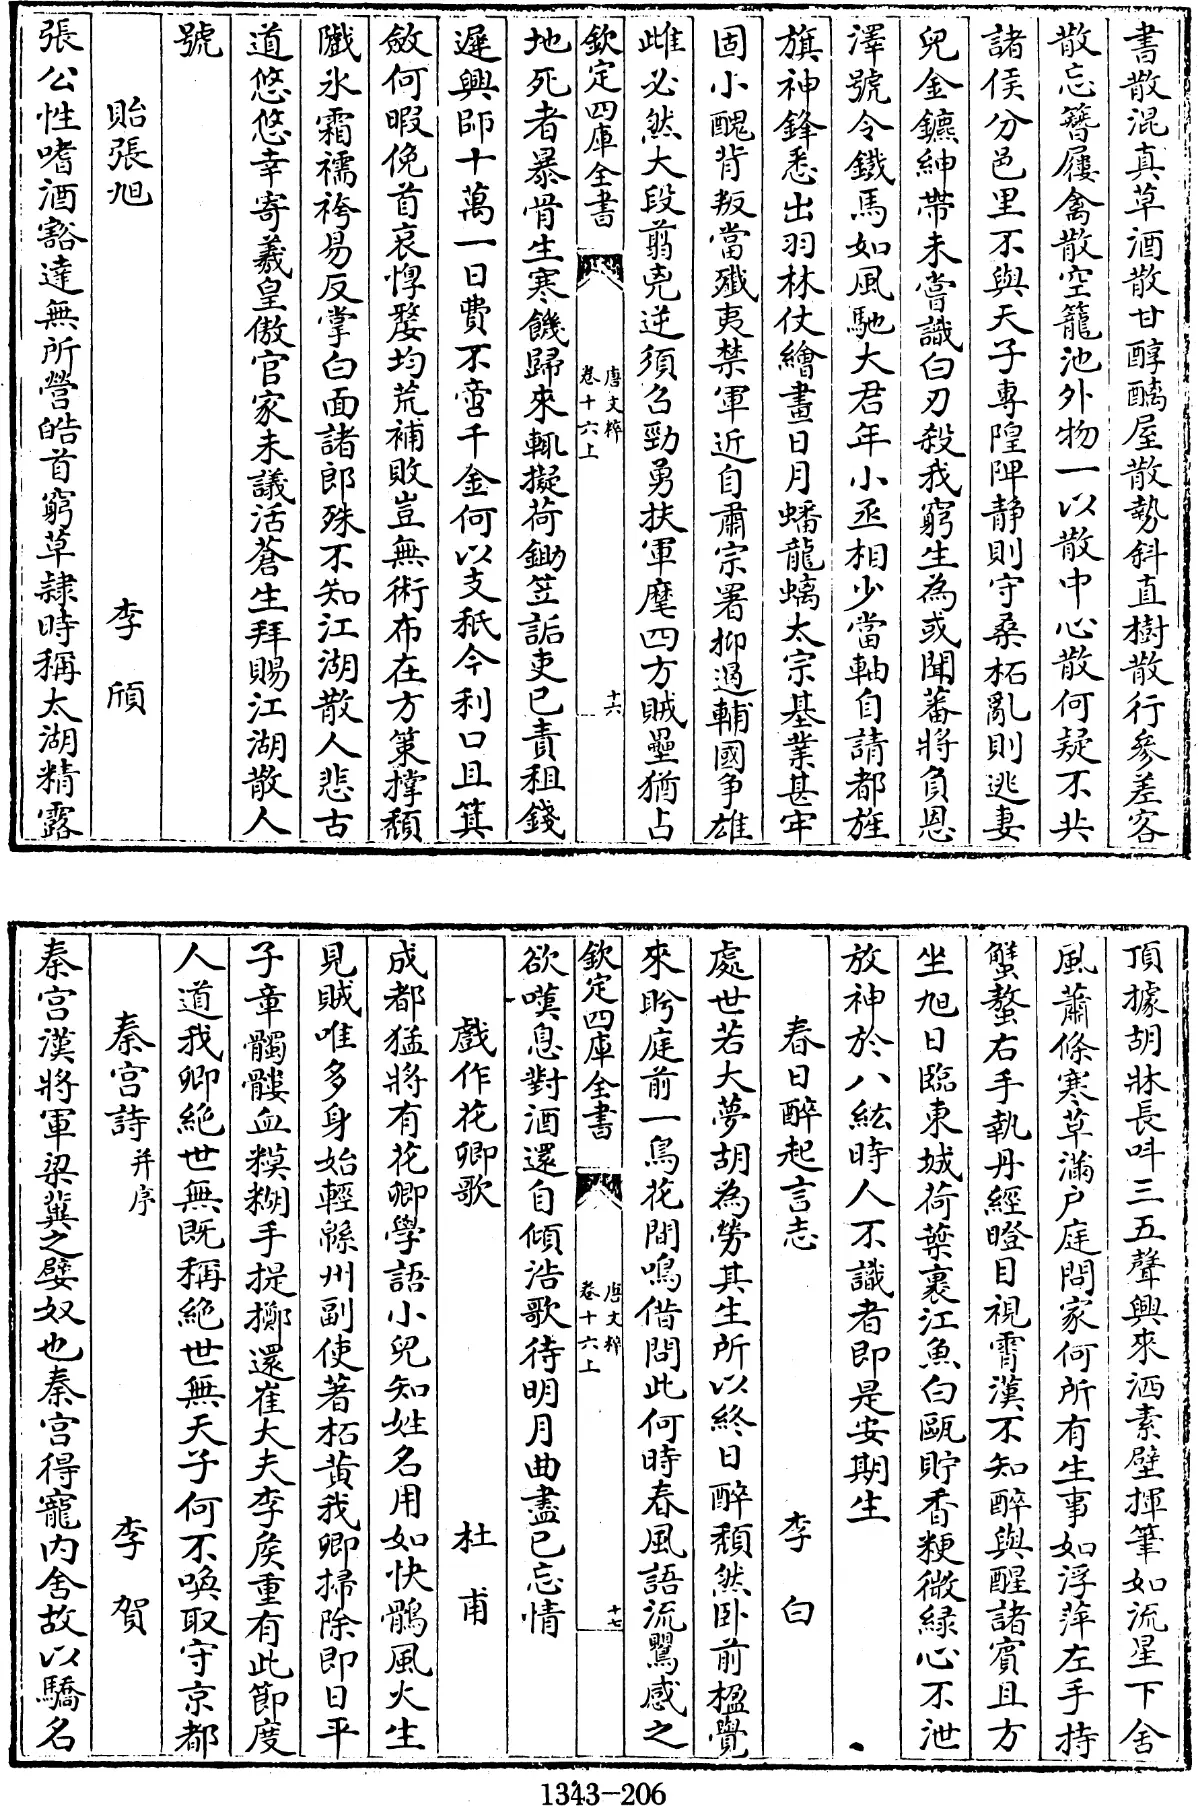 書散混真草酒散甘醇醨屋散勢斜直樹散行參差客
散忘簪屨禽散空籠池外物一以散中心散何疑不共
諸侯分邑里不與天子專隍陴静則守桑柘亂則逃妻
兒金鑣紳帶未嘗識白刃殺我窮生為或聞蕃將負恩
澤號令鐵馬如風馳大君年小丞相少當軸自請都旌
旗神鋒悉出羽林仗繪畫日月蟠龍螭太宗基業甚牢
固小醜背叛當殲夷禁軍近自肅宗署抑遏輔國争雄
雌必然大段翦兇逆須召勁勇扶軍麾四方賊壘猶占
欽定四庫全書
唐文粹
卷十六上
十六
地死者暴骨生寒饑歸來輒擬荷鋤笠詬吏已責租錢
遲興師十萬一日費不啻千金何以支秖今利口且箕
斂何暇俛首哀惸嫠均荒補敗豈無術布在方策撑頽
戲氷霜襦袴易反掌白面諸郎殊不知江湖散人悲古
道悠悠幸寄羲皇傲官家未議活蒼生拜賜江湖散人
號
貽張旭
李頎
張公性嗜酒豁達無所營皓首窮草隷時稱太湖精露
頂據胡牀長呌三五聲興來洒素壁揮筆如流星下舍
風蕭條寒草滿户庭問家何所有生事如浮萍左手持
蟹螯右手執丹經瞪目視霄漢不知醉與醒諸賓且方
坐旭日臨東城荷葉裹江魚白甌貯香粳微緑心不泄
放神於八紘時人不識者即是安期生
春日醉起言志
李白
處世若大夢胡為勞其生所以終日醉頽然卧前楹覺
來盻庭前一鳥花間鳴借問此何時春風語流鸎感之
欽定四庫全書
唐文粹
卷十六上
十七
欲嘆息對酒還自傾浩歌待明月曲盡已忘情
戲作花卿歌
杜甫
成都猛將有花卿學語小兒知姓名用如快鶻風火生
見賊唯多身始輕緜州副使著柘黄我卿掃除即日平
子章髑髏血糢糊手提擲還崔大夫李侯重有此節度
人道我卿絶世無既稱絶世無天子何不喚取守京都
秦宫詩并序
李賀
秦宫漢將軍梁冀之嬖奴也秦宫得寵内舍故以驕名
1343-206